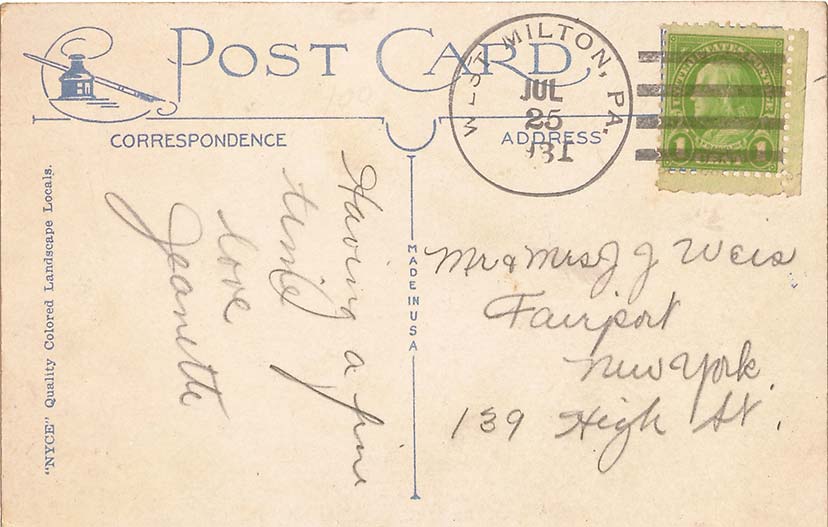 POST CARD
WEST MILTON, PA.
JUL
25
1931
UNITED STATES POSTAGE
1 CENT 1
CORRESPONDENCE
ADDRESS
Having a fine
time
love
Jeanette
MADE IN USA
Mr & Mrs J J Weis
Fairport
New York
139 High St.
"NYCE" Quality Colored Landscape Locals.